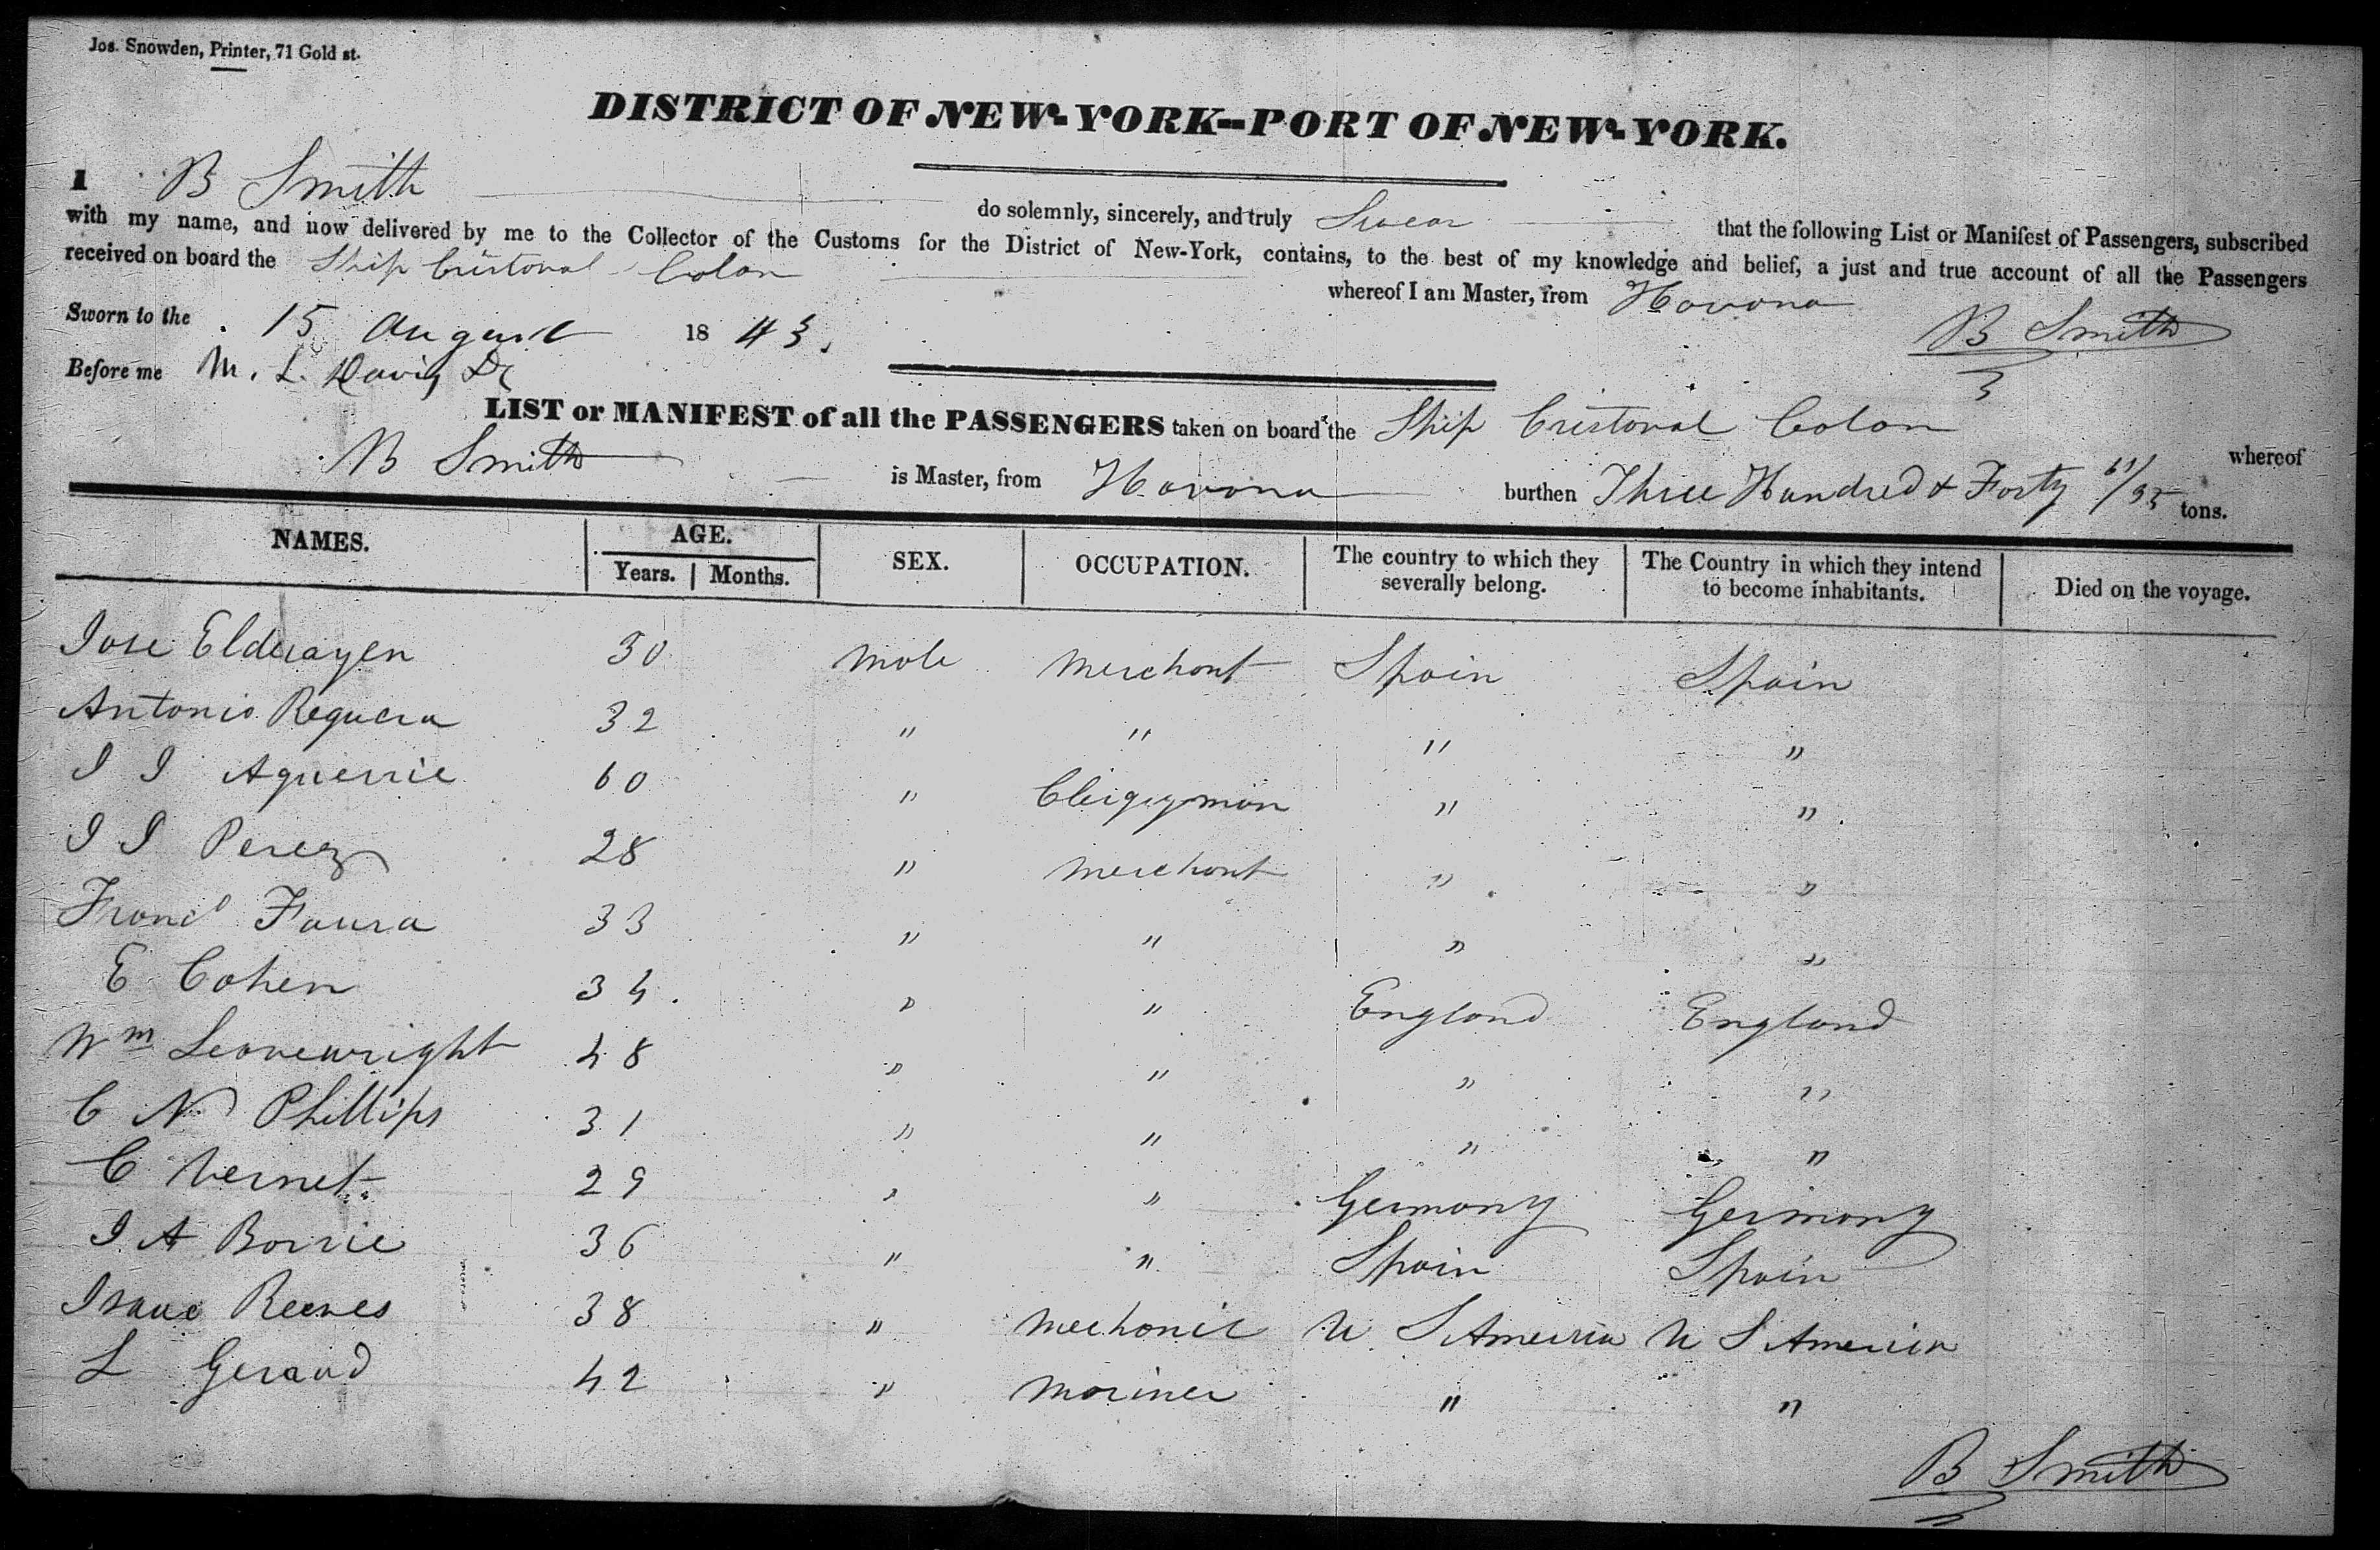 Jos. Snowden, Printer, 71 Gold st.
DISTRICT OF NEW-YORK--PORT OF NEW-YORK.
I B Smith do solemnly, sincerely, and truly Swear that the following List or Manifest of Passengers, subscribed
with my name, and now delivered by me to the Collector of the Customs for the District of New-York, contains, to the best of my knowledge and belief, a just and true account of all the Passengers
received on board the Ship Cristoval Colon whereof I am Master, from Havana
Sworn to the 15 August 1843. B Smith
Before me M. L. Davis
LIST or MANIFEST of all the PASSENGERS taken on board the Ship Cristoval Colon whereof
B Smith is Master, from Havana burthen Three Hundred & Forty 61/95 tons.
NAMES. AGE. Years. Months. SEX. OCCUPATION. The country to which they severally belong. The Country in which they intend to become inhabitants. Died on the voyage.
Jose Elduayen 30 Male Merchant Spain Spain
Antonio Reguera 32 " " " "
J J Aguerrie 60 " Clergyman " "
J J Perez 28 " Merchant " "
Franco Faura 33 " " " "
E Cohen 34. " " England England
Wm 48 " " " "
C N Phillips 31 " " " "
C Vernet 29 " " Germany Germany
J. A Borrie 36 " " Spain Spain
Isaac Reeves 38 " Mechanic U S America U S America
L Geraud 42 " Mariner " "
B Smith